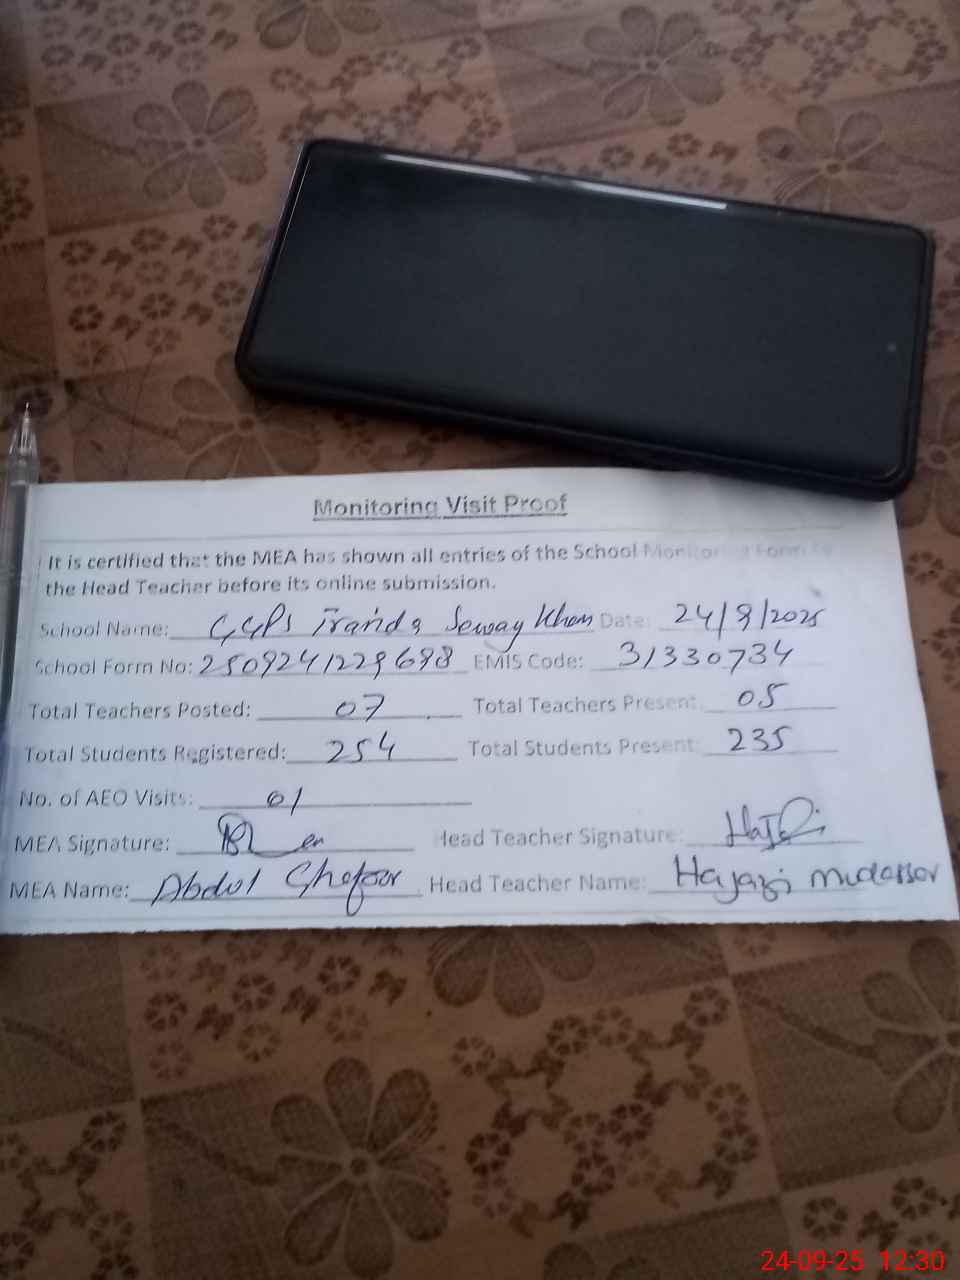 Monitoring Visit Proof
It is certified that the MEA has shown all entries of the School Monitoring Form to
the Head Teacher before its online submission.
School Name: GGPS Tranda Seway Khan Date: 24/9/2025
School Form No: 2509241229698 EMIS Code: 31330734
Total Teachers Posted: 07 Total Teachers Present: 05
Total Students Registered: 254 Total Students Present: 235
No. of AEO Visits: 01
MEA Signature: Head Teacher Signature:
MEA Name: Abdul Ghafoor Head Teacher Name: Hajazi mudassar
24-09-25 12:30